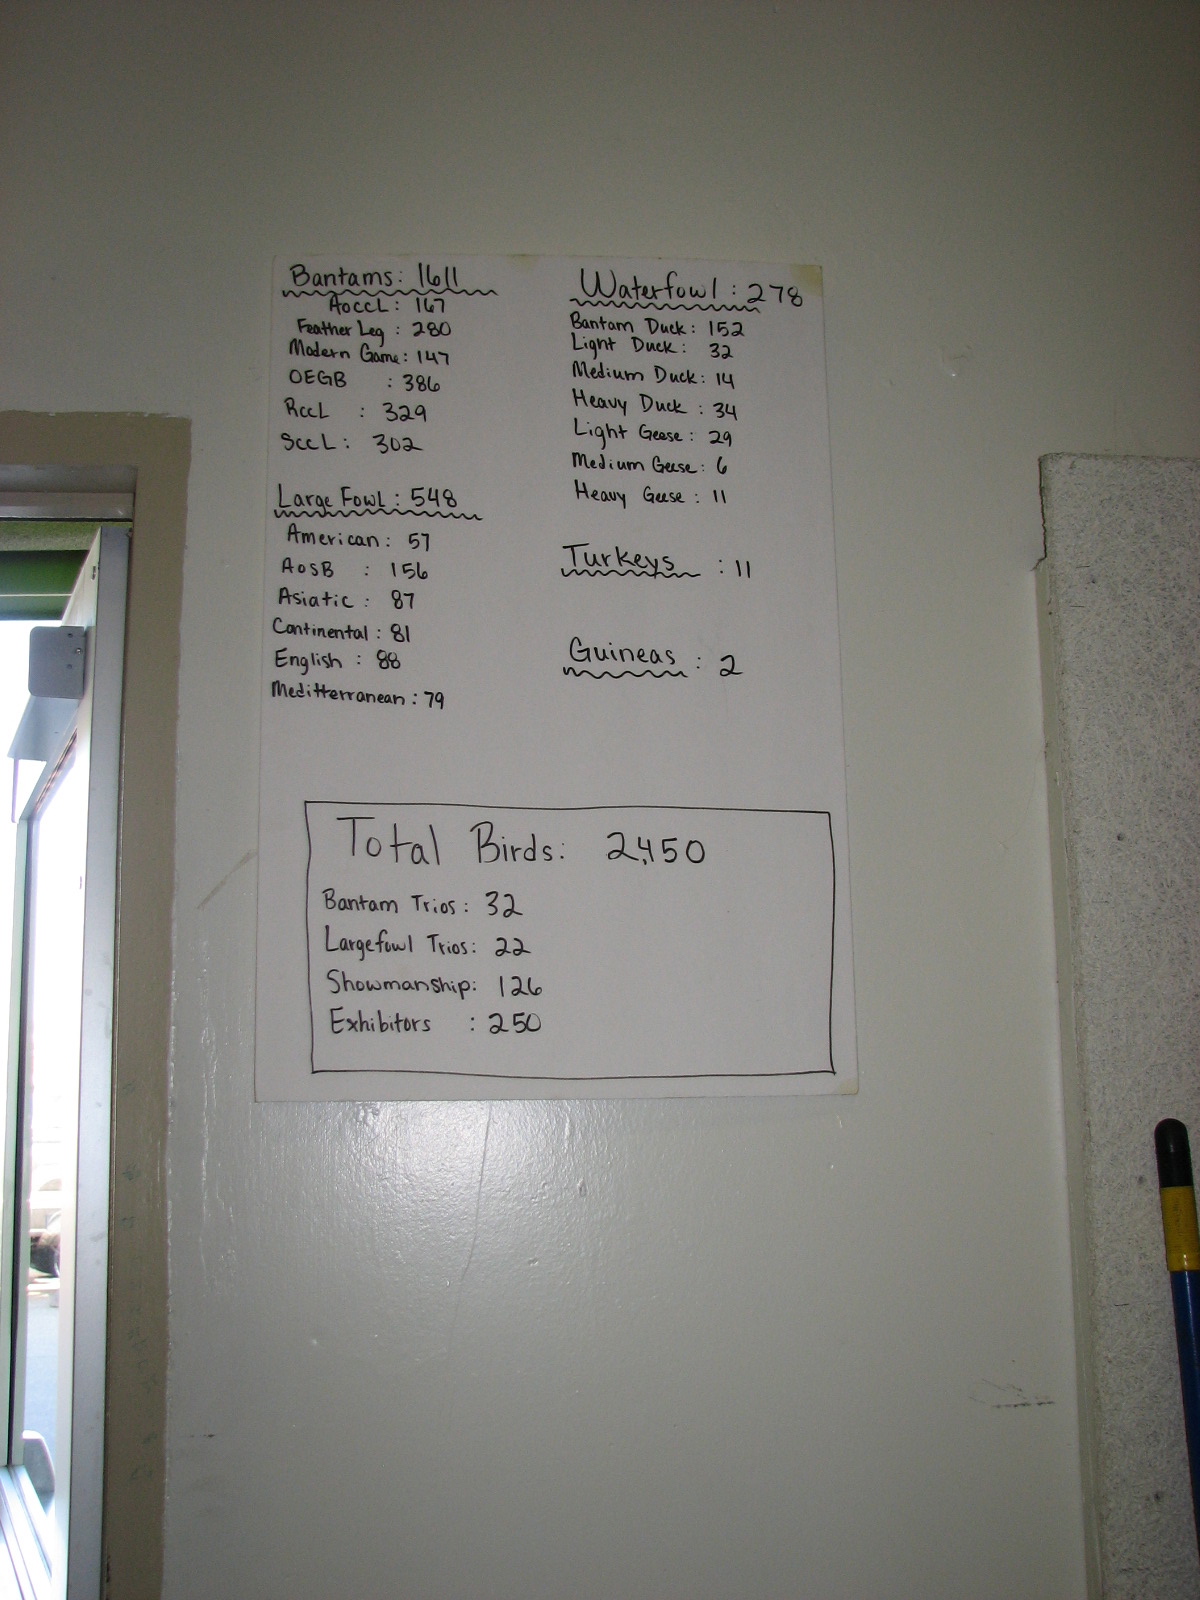 Bantams: 1611
AOCCL: 167
Feather Leg : 280
Modern Game: 147
OEGB : 386
RCCL : 329
SCCL: 302
Large Fowl : 548
American: 57
AOSB : 156
Asiatic : 87
Continental : 81
English : 88
Meditterranean : 79
Waterfowl : 278
Bantam Duck: 152
Light Duck: 32
Medium Duck: 14
Heavy Duck : 34
Light Geese : 29
Medium Geese: 6
Heavy Geese : 11
Turkeys : 11
Guineas : 2
Total Birds: 2,450
Bantam Trios: 32
Largefowl Trios: 22
Showmanship: 126
Exhibitors : 250